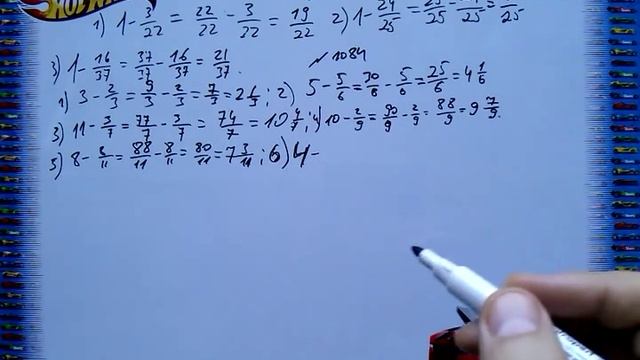 HOT WH
1) 1 - 3/22 = 22/22 - 3/22 = 19/22 2) 1 - 24/25 = 25/25 - /25 = /25
3) 1 - 16/37 = 37/37 - 16/37 = 21/37. 1084
1) 3 - 2/3 = 9/3 - 2/3 = 7/3 = 2 ; 2) 5 - 5/6 = 30/6 - 5/6 = 25/6 = 4 1/6
3) 11 - 3/7 = 77/7 - 3/7 = 74/7 = 10 4/7; 4) 10 - 2/9 = 90/9 - 2/9 = 88/9 = 9 7/9.
5) 8 - 8/11 = 88/11 - 8/11 = 80/11 = 7 3/11; 6) 4 -